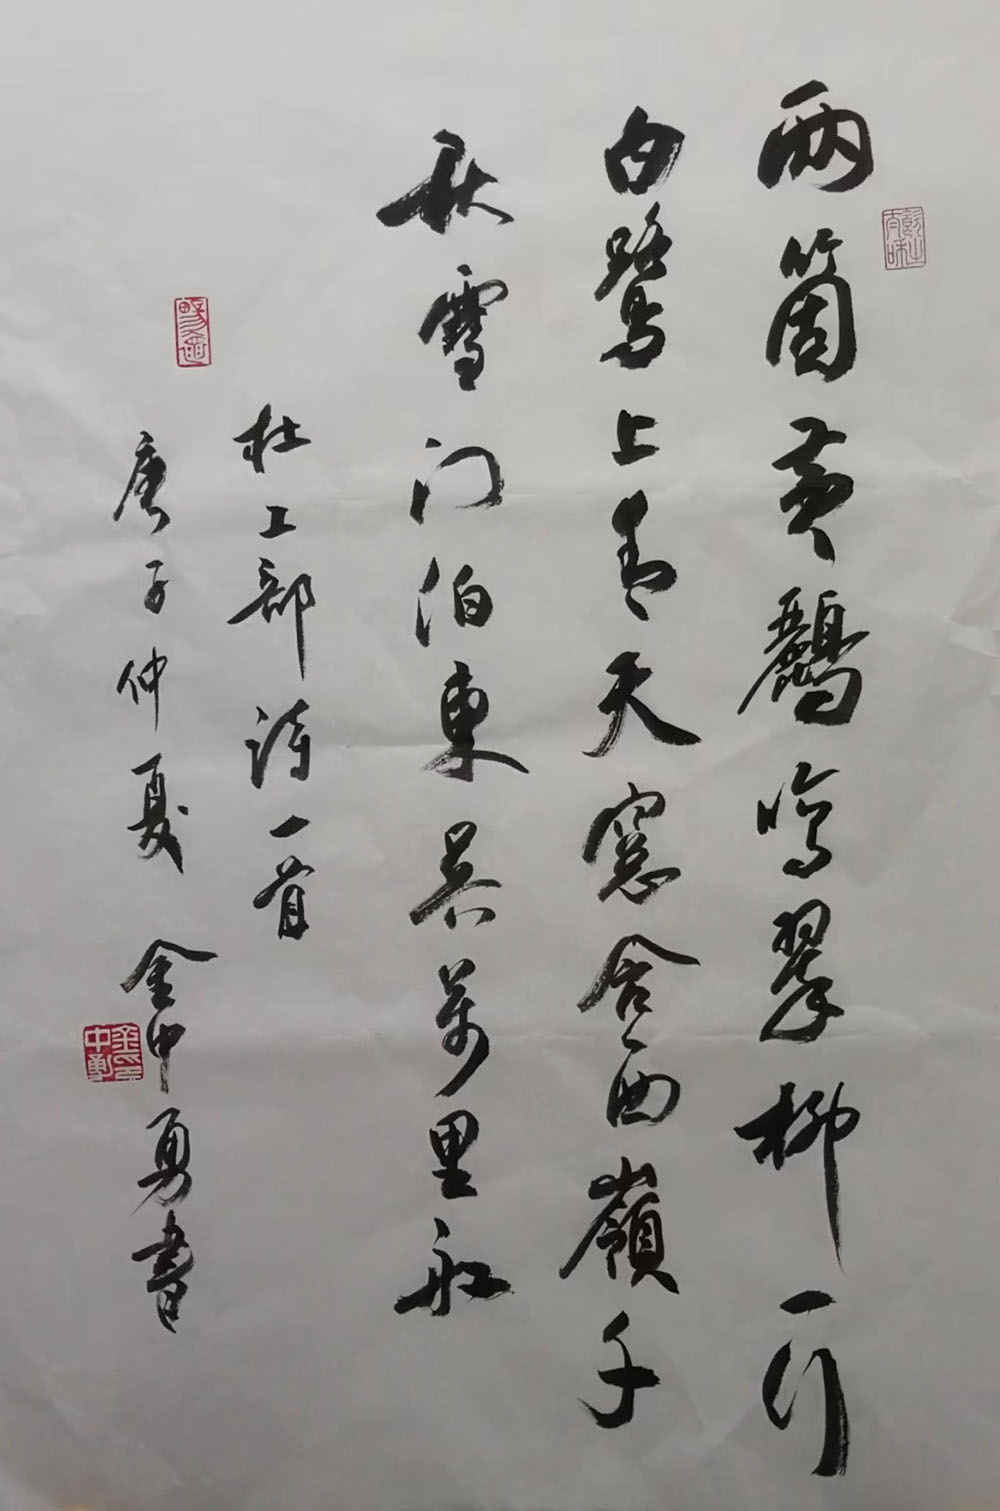 兩箇黃鸝鳴翠柳一行
白鷺上青天窻含西嶺千
秋雪门泊東吳萬里舡
杜工部詩一首
庚子仲夏 金中勇書
金中勇印